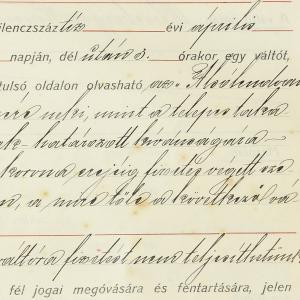 ilenczsáztíz évi április
napján, délután 3. órakor egy váltót,
tulsó oldalon olvasható az
neki, mint a telepes laka
határozott kivánságára
korona erejéig fizetés végett
n, a mire tőle a következő vá
váltóra fizetést nem teljesíthetünk
fél jogai megóvására és fentartására, jelen